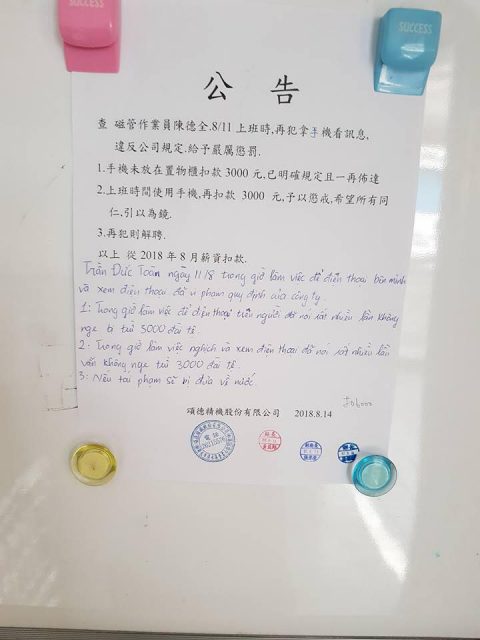 SUCCESS
SUCCESS
公告
查 磁管作業員陳德全.8/11 上班時,再犯拿手機看訊息,
違反公司規定.給予嚴厲懲罰.
1.手機未放在置物櫃扣款 3000 元,已明確規定且一再佈達
2.上班時間使用手機,再扣款 3000 元,予以懲戒,希望所有同
仁,引以為鏡.
3.再犯則解聘.
以上 從 2018 年 8 月薪資扣款.
Trần Đức Toàn ngày 11/8 trong giờ làm việc để điện thoại bên mình
và xem điện thoại đã vi phạm quy định của công ty.
1: Trong giờ làm việc để điện thoại trên người đã nói rất nhiều lần không
nge bị trừ 3000 đài tệ.
2: Trong giờ làm việc nghịch và xem điện thoại đã nói rất nhiều lần
vẫn không nge trừ 3000 đài tệ.
3: Nếu tái phạm sẽ bị đưa về nước.
頌德精機股份有限公司 2018.8.14